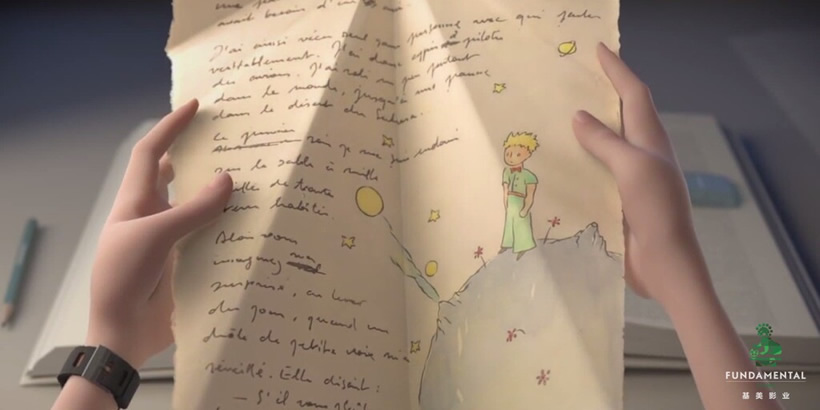 avant besoin d'un
J'ai ainsi vécu seul sans personne avec qui parler
véritablement. J'ai donc appris à piloter
des avions. J'ai volé un peu partout
dans le monde, jusqu'à une panne
dans le désert du Sahara.
Le premier soir je me suis endormi
sur le sable à mille
mille de toute
terre habitée.
Alors vous
imaginez ma
surprise, au lever
du jour, quand une
drôle de petite voix m'a
réveillé. Elle disait :
— S'il vous plaît
FUNDAMENTAL
基美影业